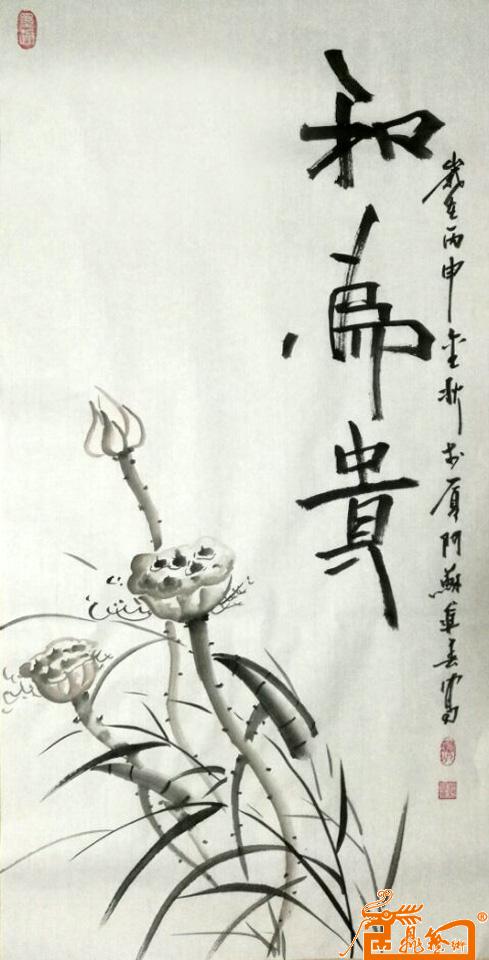 和為貴
歲在丙申金秋於厦門蘇寫